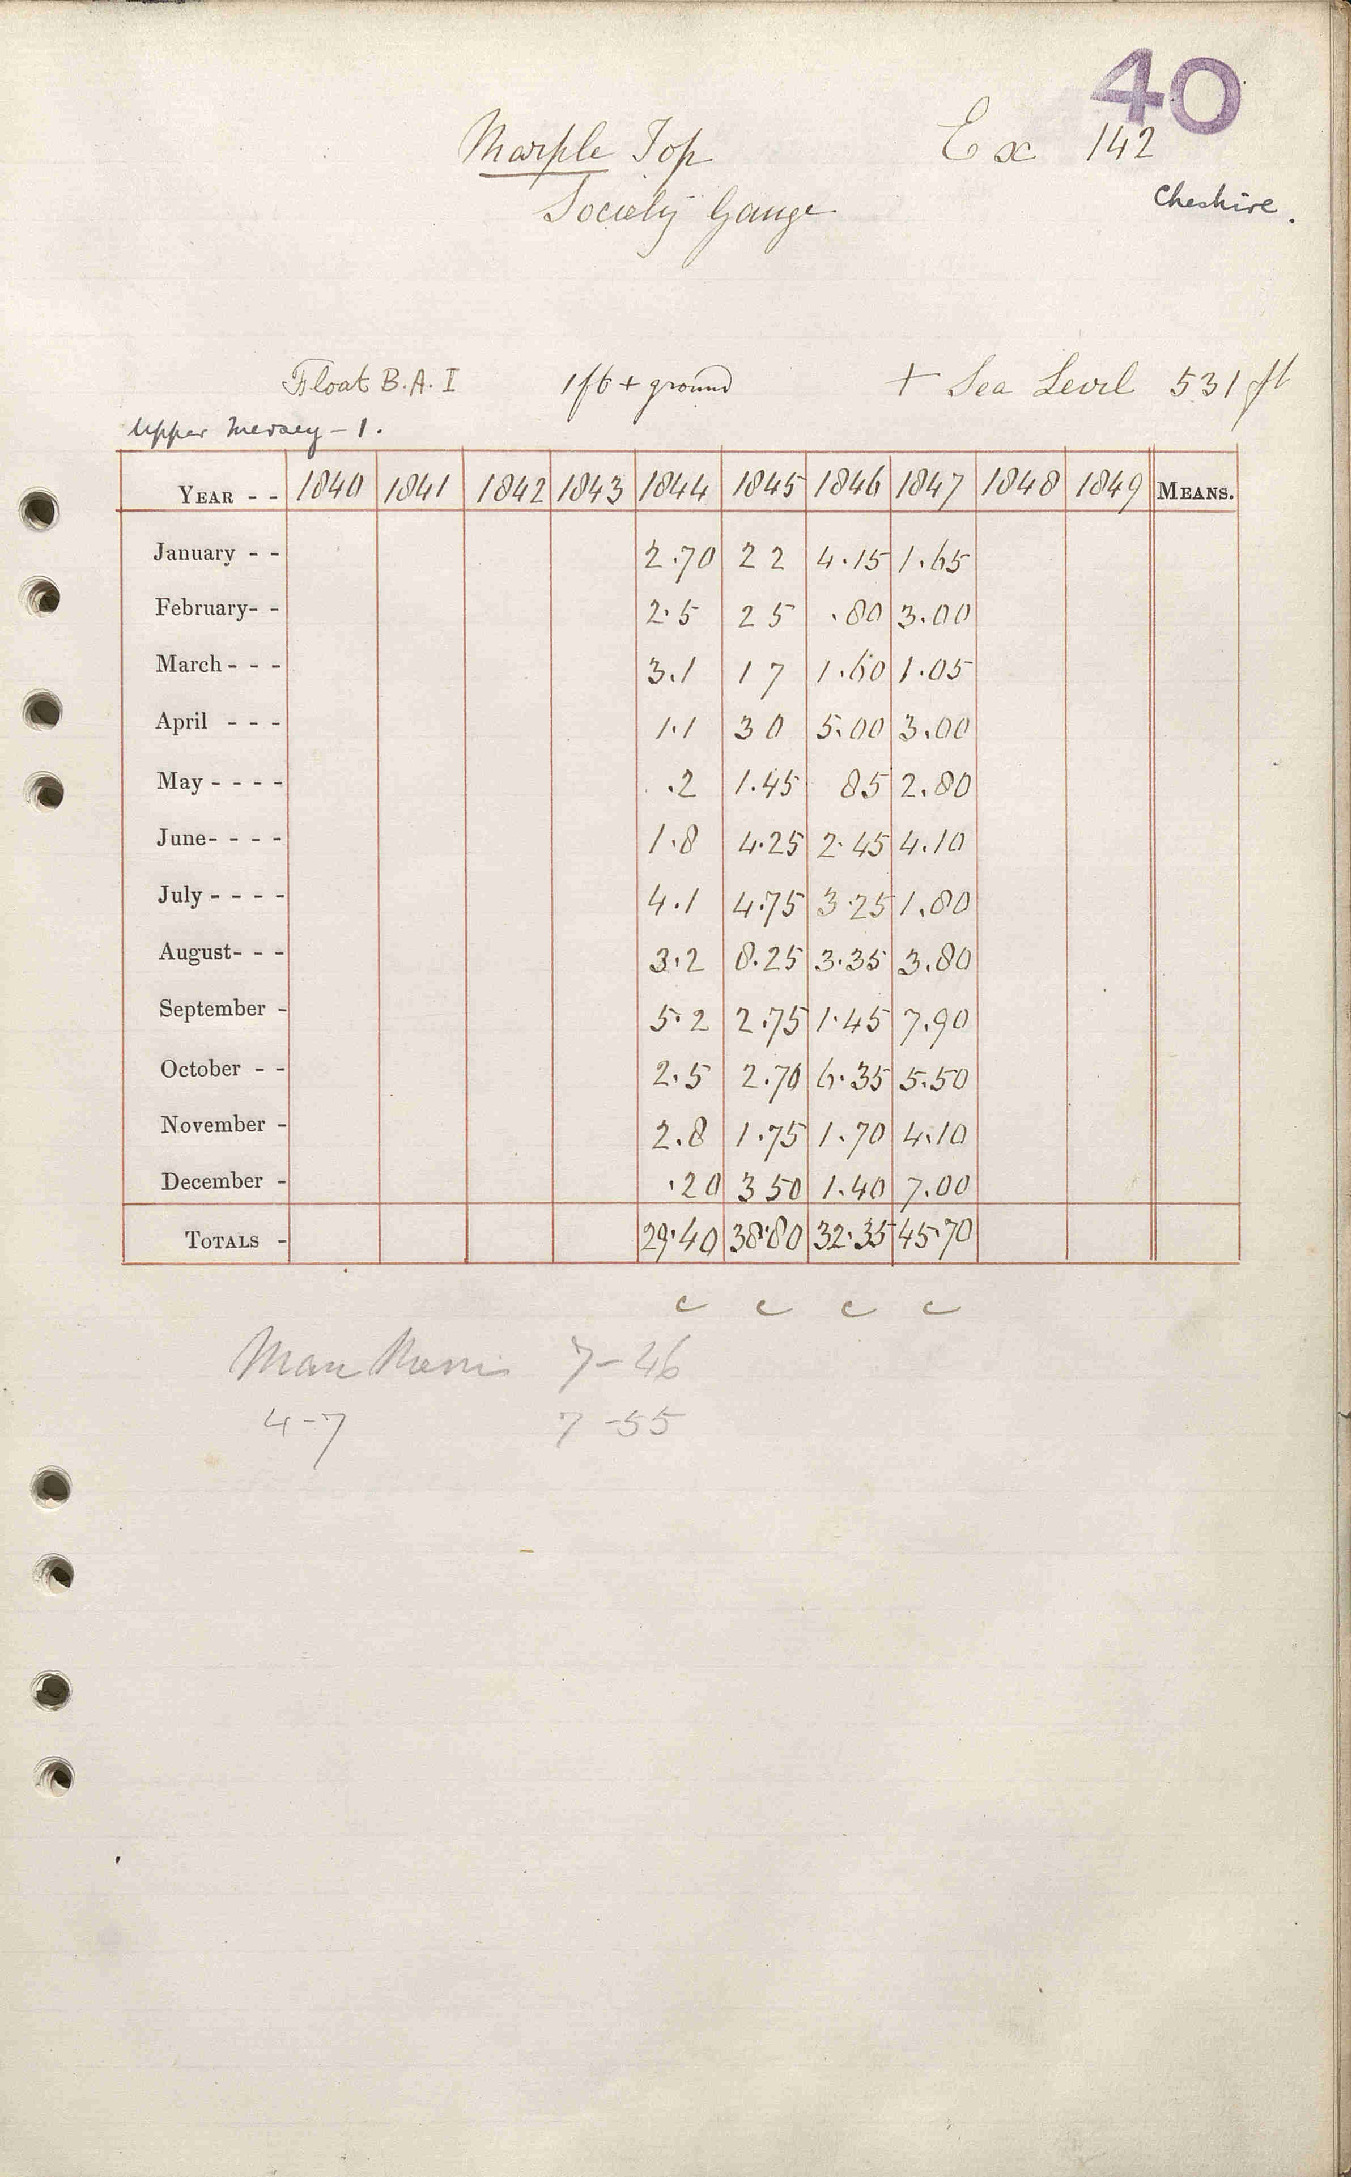 40
Marple Top Ex 142
Society Gauge Cheshire.
Float B.A. I 1ft + ground + Sea Level 531 ft
Upper Mersey - 1.
YEAR - - 1840 1841 1842 1843 1844 1845 1846 1847 1848 1849 MEANS.
January - - 2.70 2 2 4.15 1.65
February- - 2.5 2 5 .80 3.00
March - - - 3.1 1 7 1.60 1.05
April - - - 1.1 3 0 5.00 3.00
May - - - - .2 1.45 85 2.80
June- - - - 1.8 4.25 2.45 4.10
July - - - - 4.1 4.75 3.25 1.80
August- - - 3.2 8.25 3.35 3.80
September - 5.2 2.75 1.45 7.90
October - - 2.5 2.70 6.35 5.50
November - 2.8 1.75 1.70 4.10
December - .20 3 50 1.40 7.00
TOTALS - 29.40 38.80 32.35 45.70
c c c c
7-46
4-7 7-55